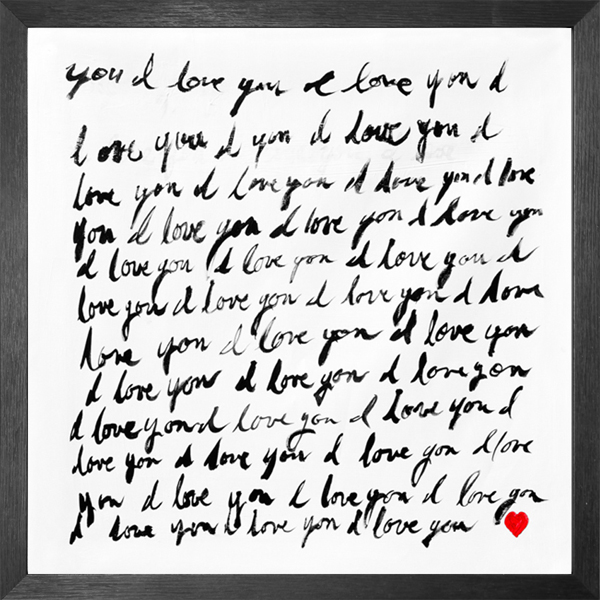 you I love you I love you I
love you I you I love you I
love you I love you I love you I love
you I love you I love you I love you
I love you I love you I love you I
love you I love you I love you I love
love you I love you I love you
I love you I love you I love you
I love you I love you I love you I
love you I love you I love you I love
you I love you I love you I love you
I love you I love you I love you